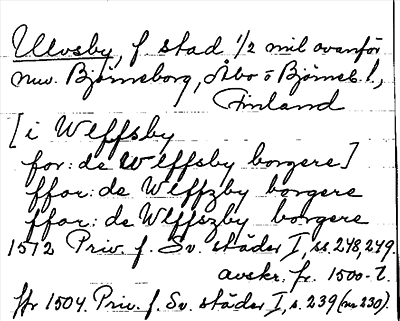 Ulvsby, f stad 1/2 mil ovanför
nuv. Björneborg, Åbo o Björneb. l.,
Finland
[i Wlffsby
for: de Wlffsby borgere]
ffor: de Wlffzby borgere
ffor: de Wlffszby borgere
1512 Priv. f. Sv. städer I, ss. 278, 279.
avskr. fr. 1500-t.
ffr 1504. Priv. f. Sv. städer I, s. 239 (nr 230).